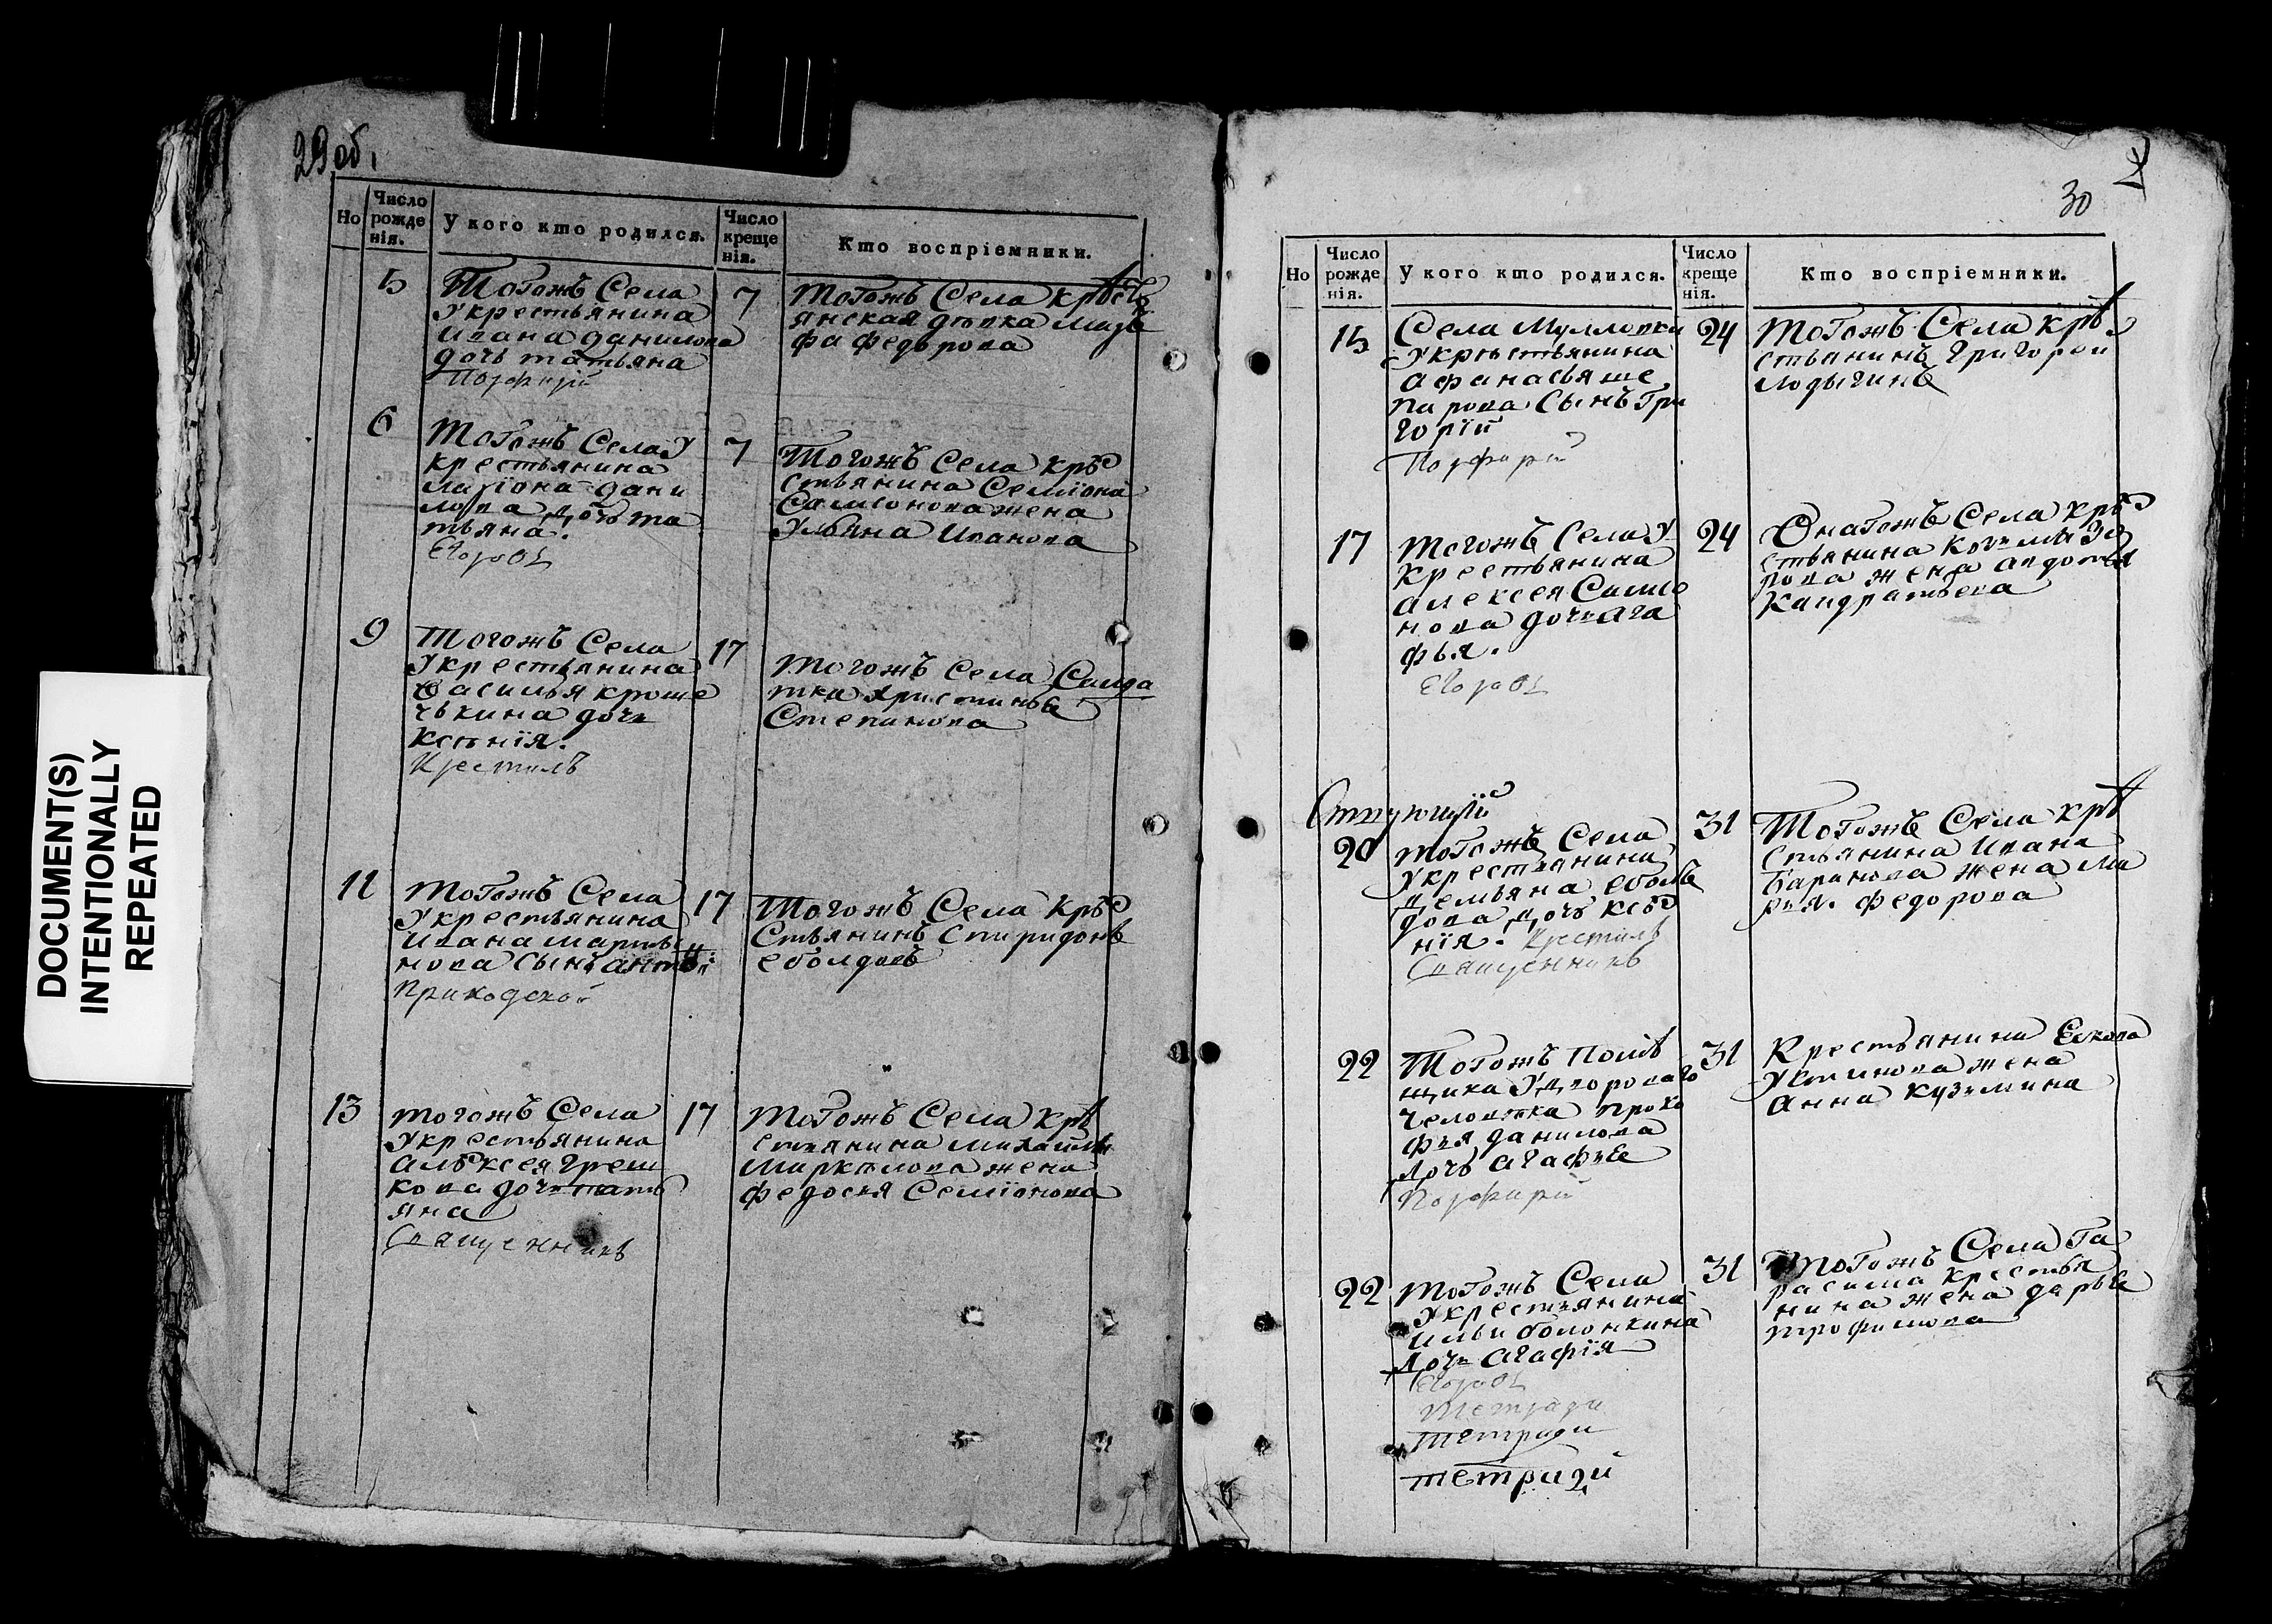 29 об.
Но
Число рожде нія.
У кого кто родился.
Число креще нія.
Кто воспріемники.
5
Тогожъ Села
Укрестьянина
Ивана данилова
дочь татьяна
Порфирій
7
Тогожъ Села крест
янская девка
федорова
6
Тогожъ Села У
крестьянина
дани
лова дочь та
тьяна.
Егоръ
7
Тогожъ Села кре
стьянина Семіона
Самсонова жена
Ульяна Иванова
9
Тогожъ Села
Укрестьянина
Василья кроше
чькина дочь
Ксенія.
Крестилъ
17
Тогожъ Села Салда
тка христинья
Степанова
11
Тогожъ Села
Укрестьянина
Ивана марты
нова Сынъ антоній
Приходской
17
Тогожъ Села кре
Стьянинъ Спиридонъ
еболдовъ
13
тогожъ Села
Укрестьянина
алексея греш
кова дочь тать
яна
Священникъ
17
Тогожъ Села кре
стьянина михайлы
Маркелова жена
федосья Семіонова
DOCUMENT(S)
INTENTIONALLY
REPEATED
30
Но
Число рожде нія.
У кого кто родился.
Число креще нія.
Кто воспріемники.
15
Села Мулловки
Укрестьянина
афанасья ше
парова Сынъ Гри
горій
Порфирій
24
Тогожъ Села кре
стьянинъ григорей
лодыгинъ
17
Тогожъ Села У
крестьянина
алексея Самсо
нова дочь ага
фья.
Егоръ
24
Онагожъ Села кре
стьянина козьмы
жена авдотья
Кандратьева
20
тогожъ Села
Укрестьянина
демьяна еболь
дова дочь ксе
нія. Крестилъ
Священникъ
31
Тогожъ Села кре
Стьянина Ивана
Баринова жена Ма
рья федорова
22
Тогожъ поме
щика Удвороваго
человека проко
фья данилова
дочь агафья
Порфирій
31
Крестьянина
Устинова жена
анна кузьмина
22
Тогожъ Села
Укрестьянина
Ильи болонкина
дочь агафія
Егоръ
тетради
тетради
тетради
31
Тогожъ Села Га
расима крестья
нина жена дарья
трофимова